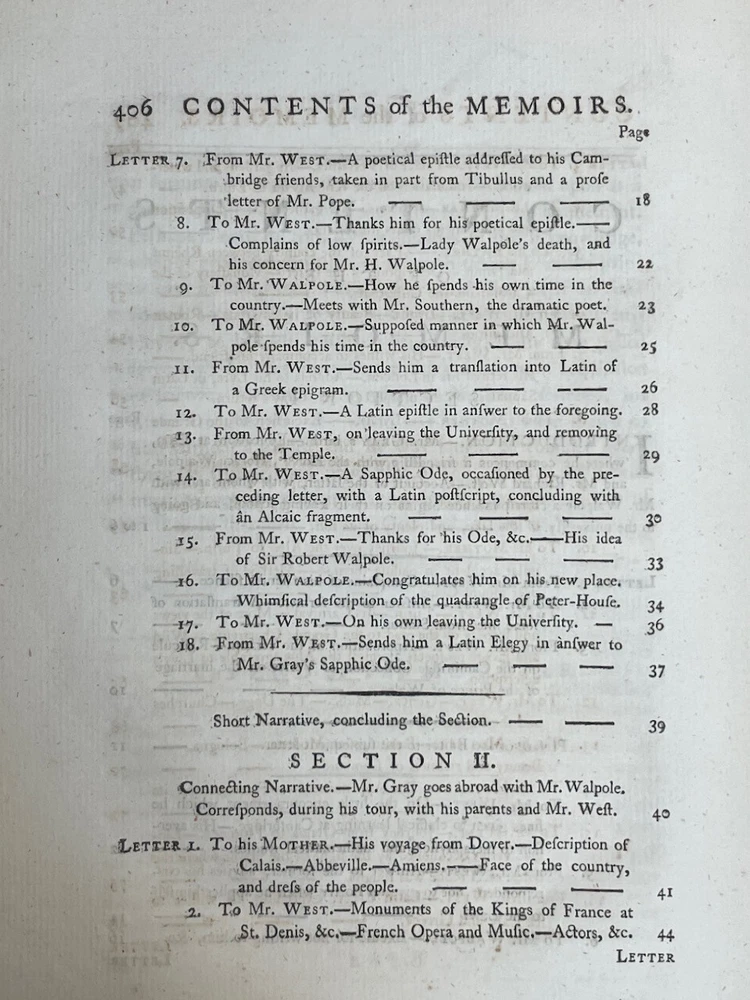 406 CONTENTS of the MEMOIRS.
Page
LETTER 7. From Mr. WEST.—A poetical epiſtle addreſſed to his Cam-
bridge friends, taken in part from Tibullus and a proſe
letter of Mr. Pope. — — — 18
8. To Mr. WEST.—Thanks him for his poetical epiſtle.——
Complains of low ſpirits.—Lady Walpole's death, and
his concern for Mr. H. Walpole. — — 22
9. To Mr. WALPOLE.—How he ſpends his own time in the
country.—Meets with Mr. Southern, the dramatic poet. 23
10. To Mr. WALPOLE.—Suppoſed manner in which Mr. Wal-
pole ſpends his time in the country. — — 25
11. From Mr. WEST.—Sends him a tranſlation into Latin of
a Greek epigram. — — — 26
12. To Mr. WEST.—A Latin epiſtle in anſwer to the foregoing. 28
13. From Mr. WEST, on leaving the Univerſity, and removing
to the Temple. — — — 29
14. To Mr. WEST.—A Sapphic Ode, occaſioned by the pre-
ceding letter, with a Latin poſtſcript, concluding with
an Alcaic fragment. — — — 30
15. From Mr. WEST.—Thanks for his Ode, &c.——His idea
of Sir Robert Walpole. — — — 33
16. To Mr. WALPOLE.—Congratulates him on his new place.
Whimſical deſcription of the quadrangle of Peter-Houſe. 34
17. To Mr. WEST.—On his own leaving the Univerſity. — 36
18. From Mr. WEST.—Sends him a Latin Elegy in anſwer to
Mr. Gray's Sapphic Ode. — — — 37
Short Narrative, concluding the Section. — — 39
SECTION II.
Connecting Narrative.—Mr. Gray goes abroad with Mr. Walpole.
Correſponds, during his tour, with his parents and Mr. Weſt. 40
LETTER 1. To his MOTHER.—His voyage from Dover.—Deſcription of
Calais.—Abbeville.—Amiens.——Face of the country,
and dreſs of the people. — — — 41
2. To Mr. WEST.—Monuments of the Kings of France at
St. Denis, &c.—French Opera and Muſic.—Actors, &c. 44
LETTER